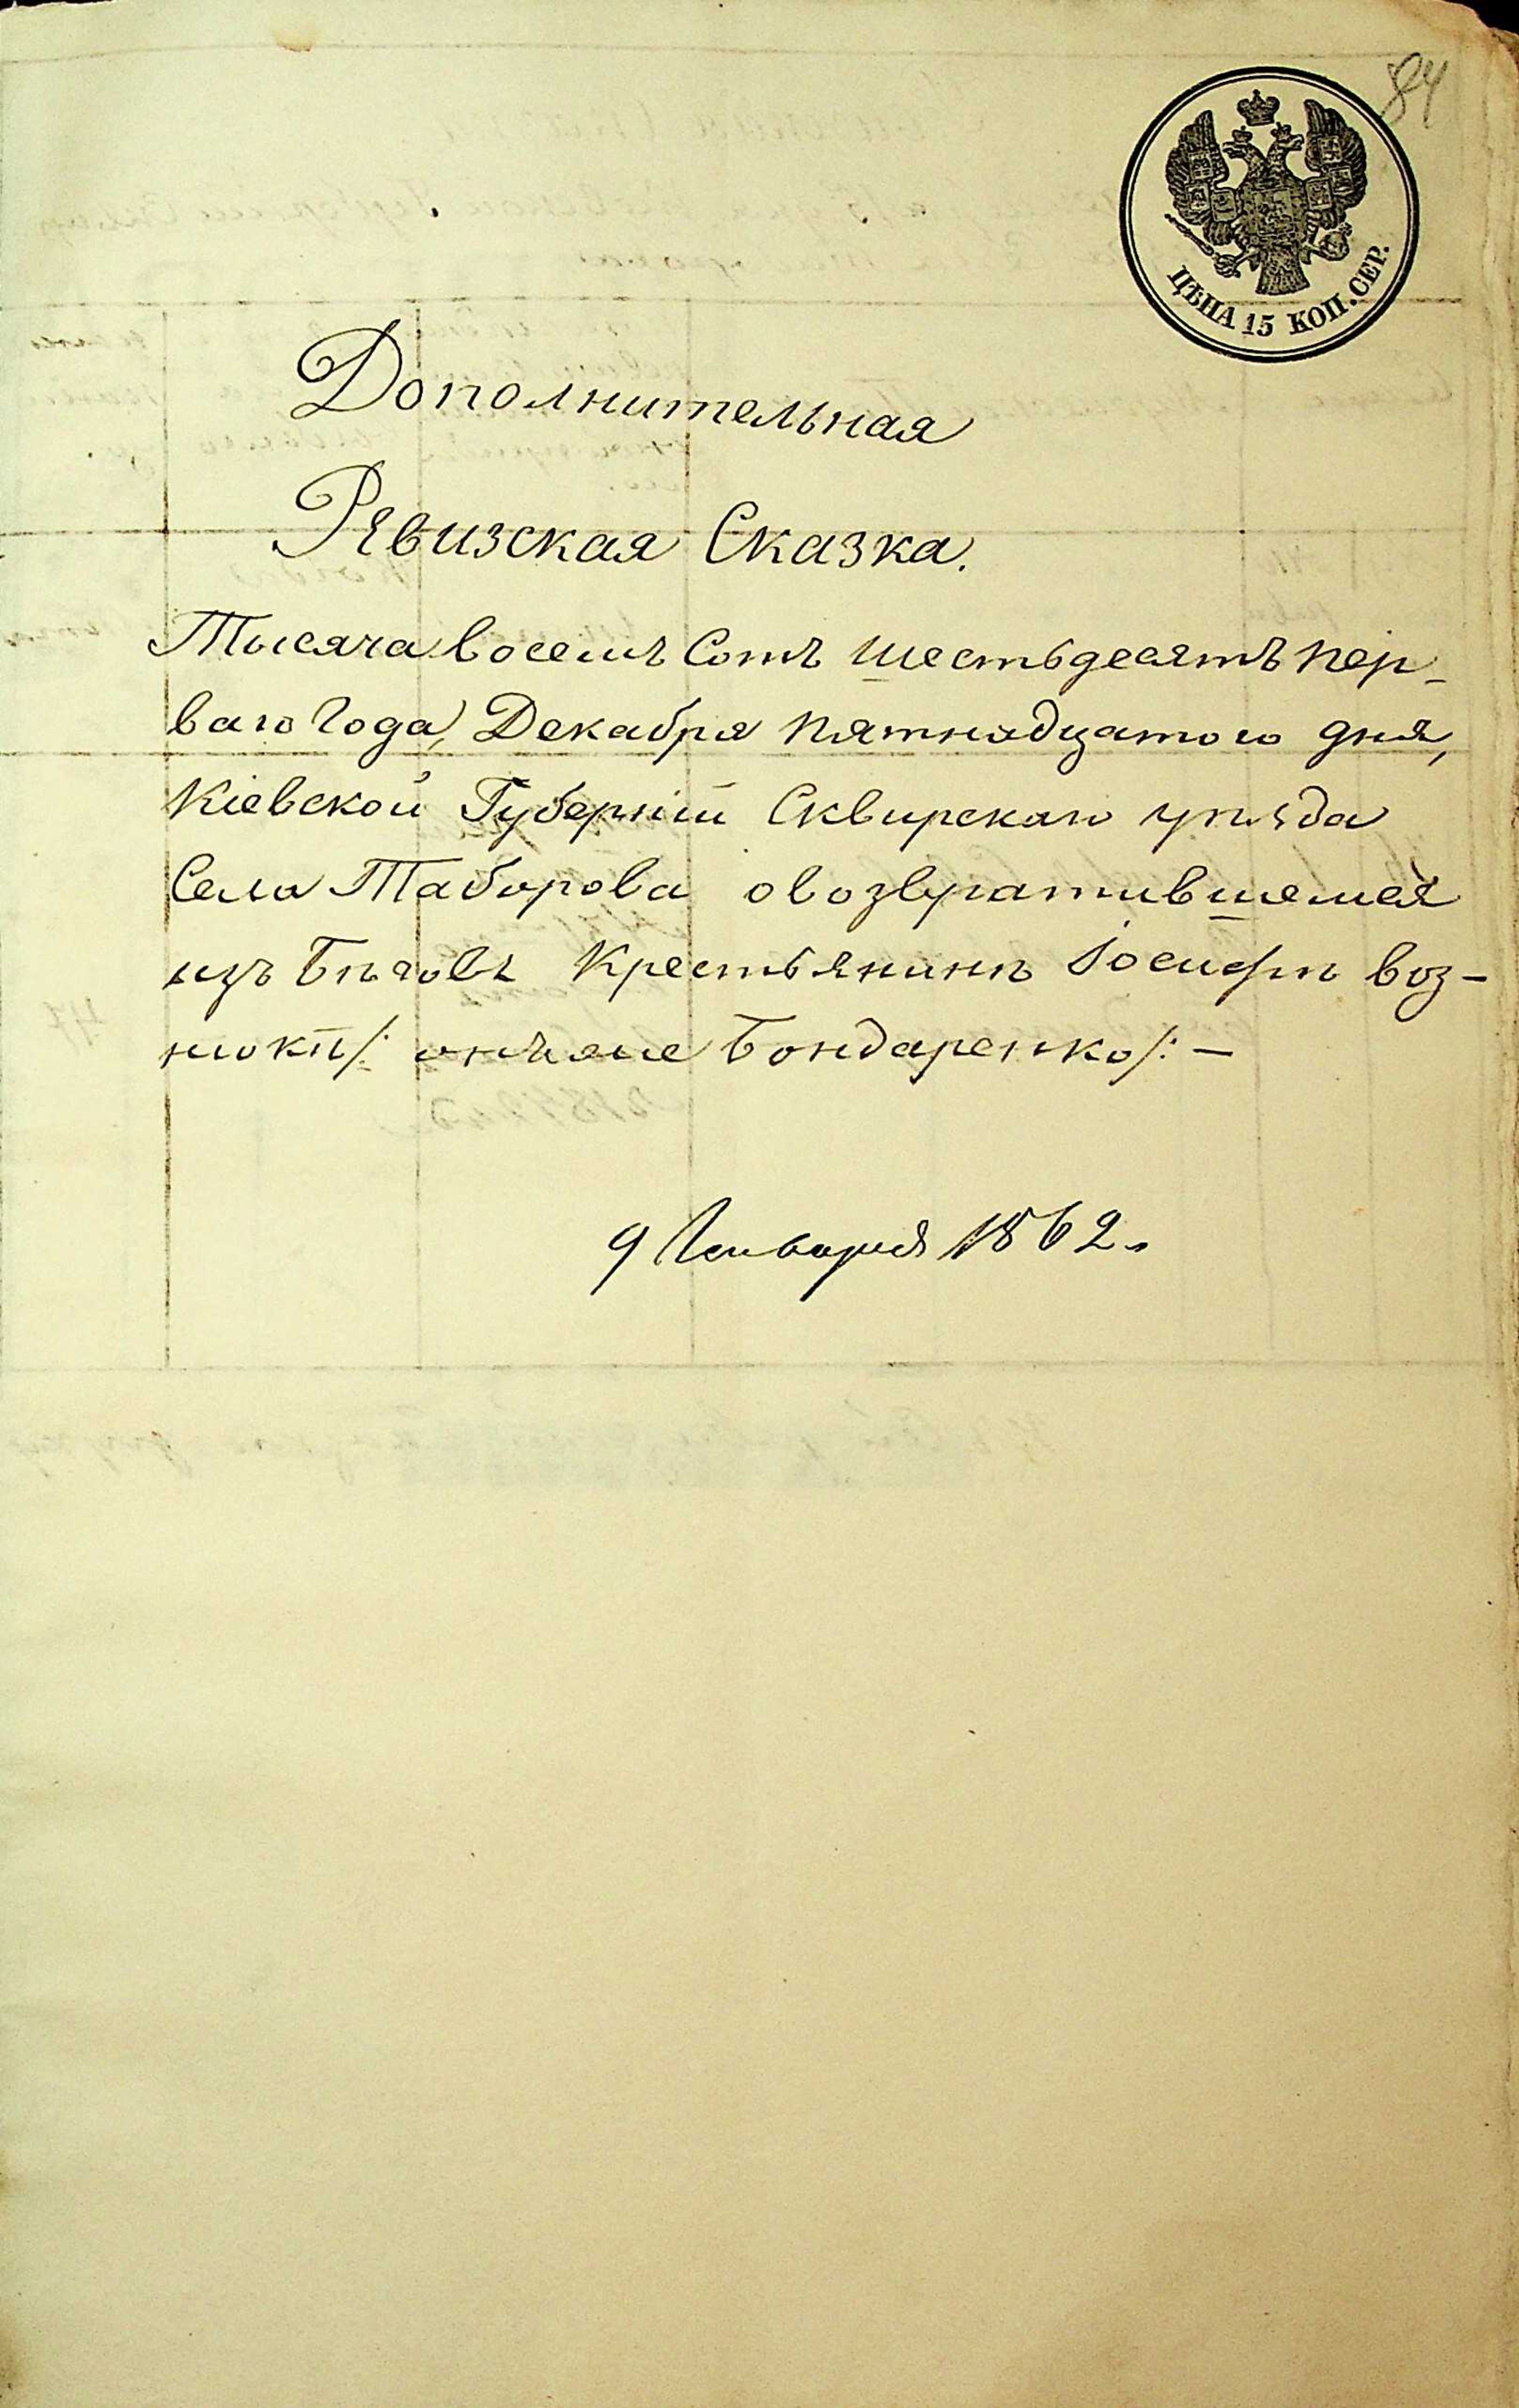 84
ЦѢНА 15 КОП. СЕР.
Дополнительная
Ревизская Сказка.
Тысяча восемъ Сотъ шестьдесятъ пер-
ваго Года, Декабря пятнадцатого дня,
Кіевской Губерніи Сквирскаго уѣзда
Села Таборова о возвратившемся
изъ бѣговъ Крестьянинѣ Іосифѣ Воз-
нюкѣ /: онъ же Бондаренко /: —
9 Генваря 1862.